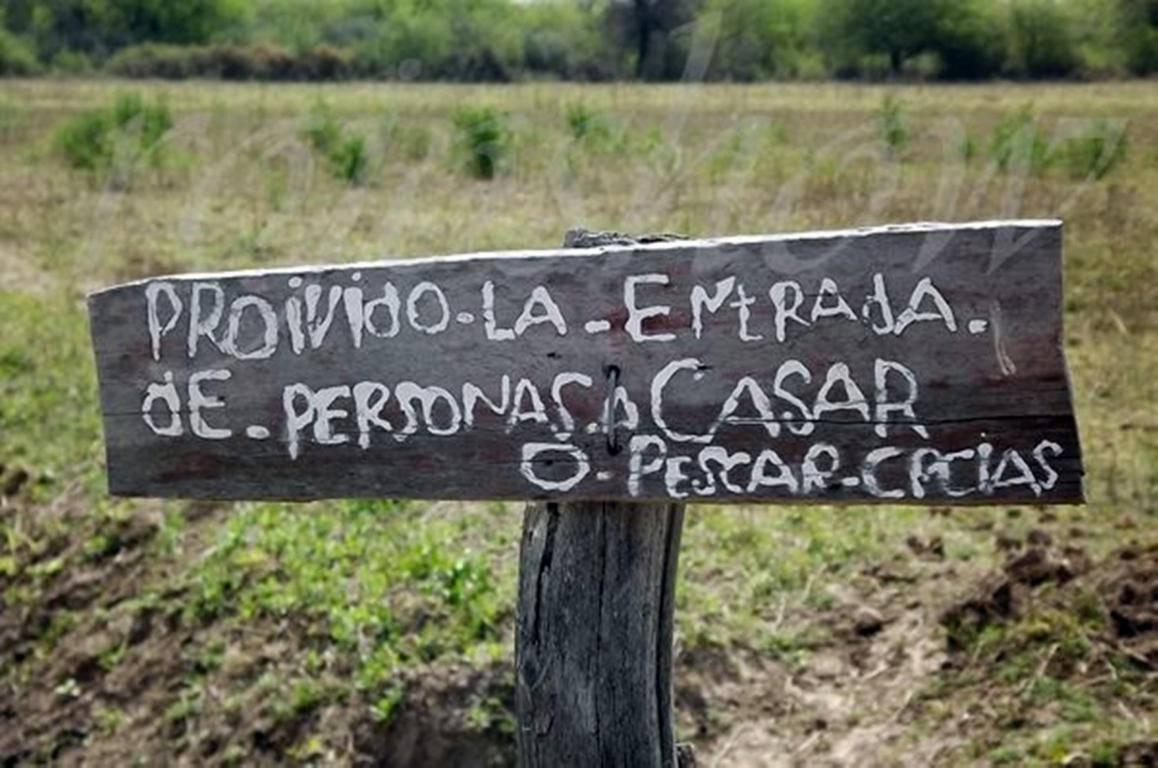 PROiViDO-LA-ENtRADA.
dE.PERSONAS.A CASAR
O-PESCAR-CRCIAS